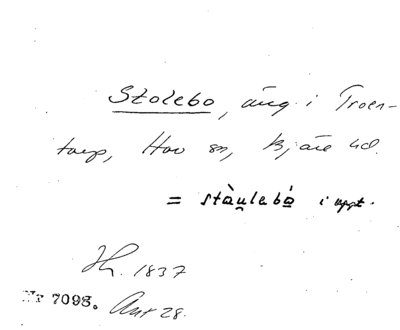 Stolebo, äng i Troen-
torp, Hov sn, Bjäre hd.
= stàu̯lebò̱ i uppt.
Jh. 1837
Nr 7098. Ant 28.